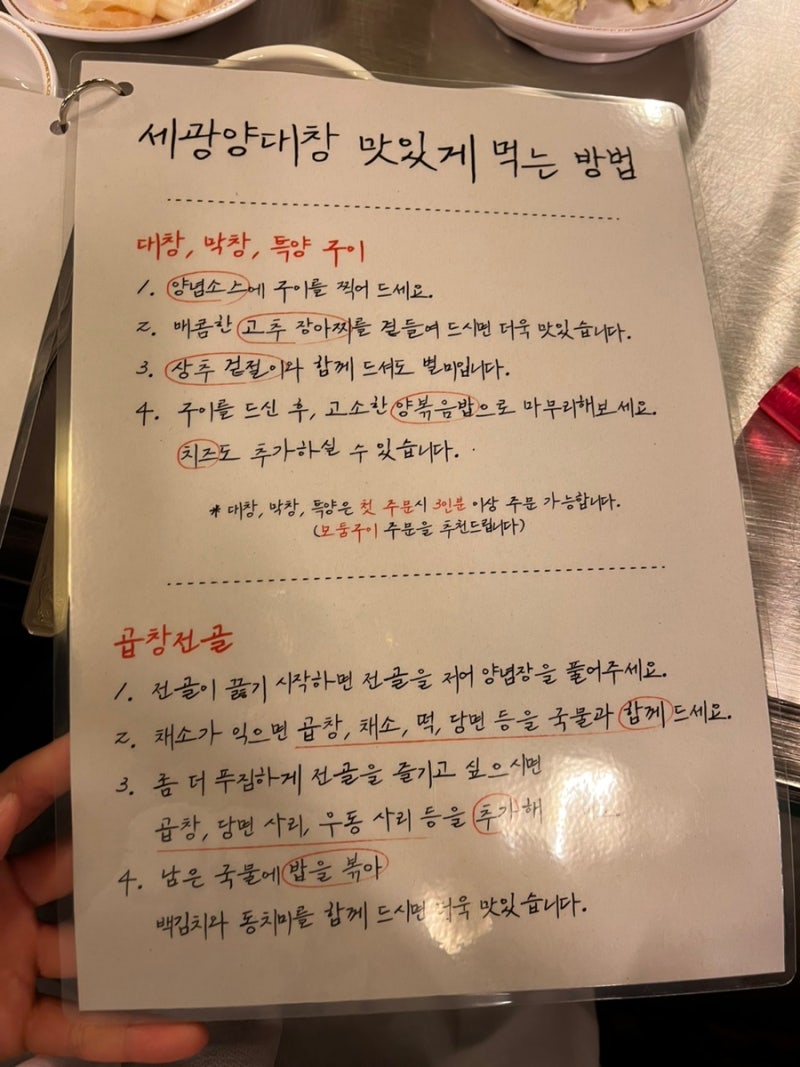 세광양대창 맛있게 먹는 방법
대창, 막창, 특양 구이
1. 양념소스에 구이를 찍어 드세요.
2. 매콤한 고추 장아찌를 곁들여 드시면 더욱 맛있습니다.
3. 상추 겉절이와 함께 드셔도 별미입니다.
4. 구이를 드신 후, 고소한 양볶음밥으로 마무리해보세요.
치즈도 추가하실 수 있습니다.
* 대창, 막창, 특양은 첫 주문시 3인분 이상 주문 가능합니다.
(모둠구이 주문을 추천드립니다)
곱창전골
1. 전골이 끓기 시작하면 전골을 저어 양념장을 풀어주세요.
2. 채소가 익으면 곱창, 채소, 떡, 당면 등을 국물과 함께 드세요.
3. 좀 더 푸짐하게 전골을 즐기고 싶으시면
곱창, 당면 사리, 우동 사리 등을 추가해
4. 남은 국물에 밥을 볶아
백김치와 동치미를 함께 드시면 더욱 맛있습니다.